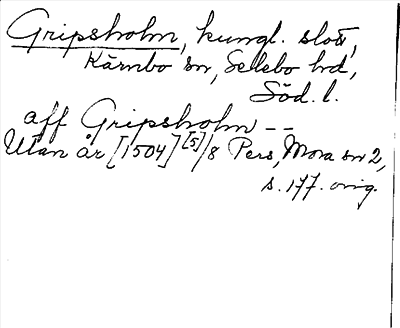 Gripsholm, kungl. slott,
Kärnbo sn, Selebo hd,
Söd. l.
aff Gripsholm --
Utan år [1504] [5]/8 Pers, Mora sn 2,
s. 177. orig.